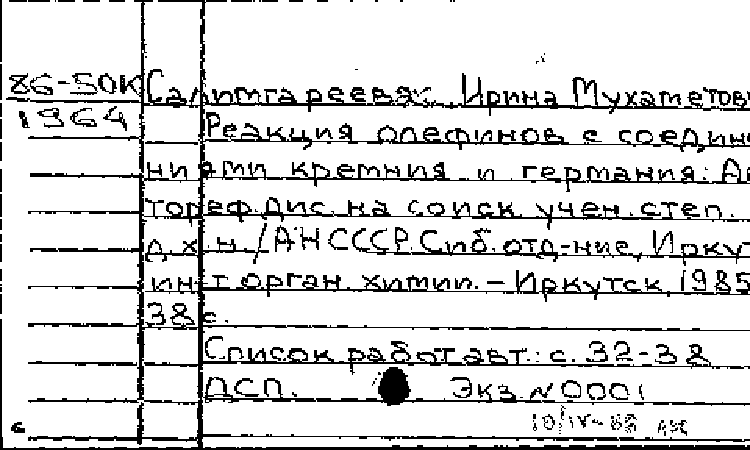 86-50к Салимгареева Ирина Мухаметов
1964 Реакция олефинов с соедине
ниями кремния и германия: Ав
тореф. дис. на соиск. учен. степ.
д.х.н. / АН СССР. Сиб. отд-ние, Иркут
ин-т орган. химии. – Иркутск, 1985
38 с.
Список работ авт.: с. 32-38
ДСП. Экз. N 0001
с